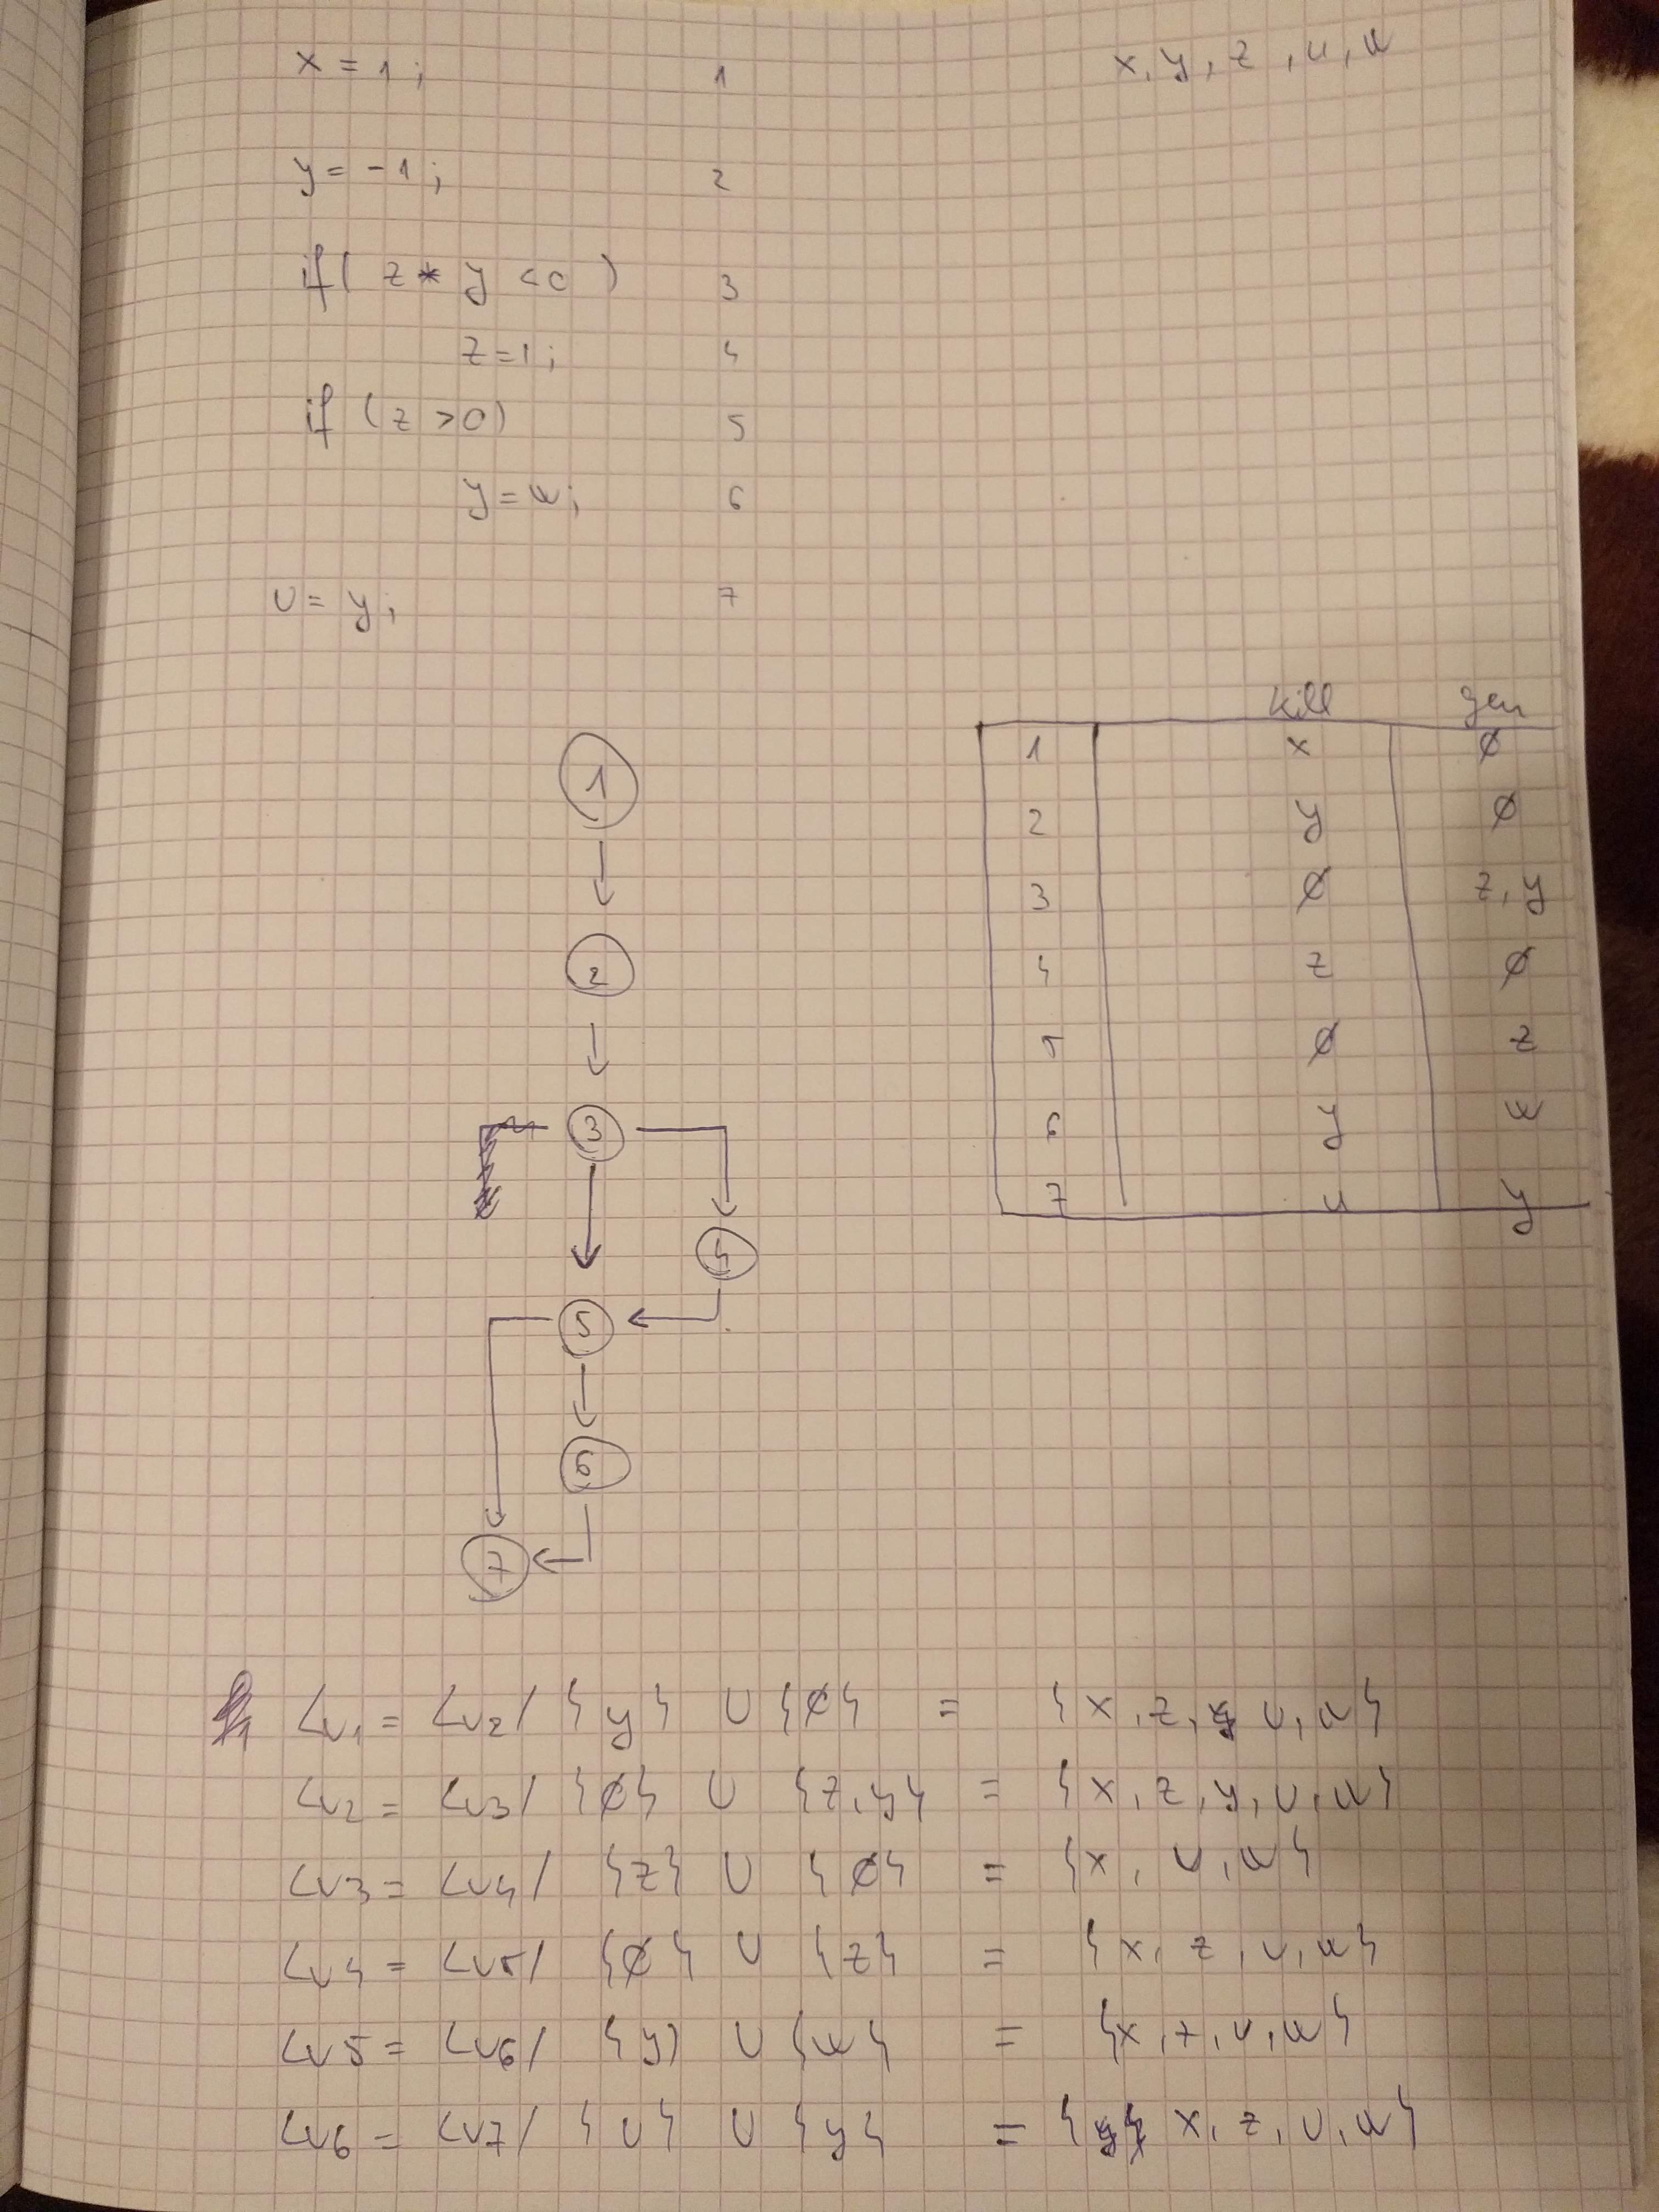 x = 1 ; 1 x, y, z, u, w
y = -1 ; 2
if ( z * y < 0 ) 3
z = 1 ; 4
if ( z > 0 ) 5
y = w ; 6
u = y ; 7
kill gen
1 x ∅
2 y ∅
3 ∅ z, y
4 z ∅
5 ∅ z
6 y w
7 u y
1
2
3
4
5
6
7
Lv1 = Lv2 / { y } ∪ {∅} = { x, z, u, w }
Lv2 = Lv3 / {∅} ∪ {z, y} = { x, z, y, u, w }
Lv3 = Lv4 / {z} ∪ {∅} = { x, u, w }
Lv4 = Lv5 / {∅} ∪ {z} = { x, z, u, w }
Lv5 = Lv6 / {y} ∪ {w} = { x, z, u, w }
Lv6 = Lv7 / {u} ∪ {y} = { x, z, u, w }